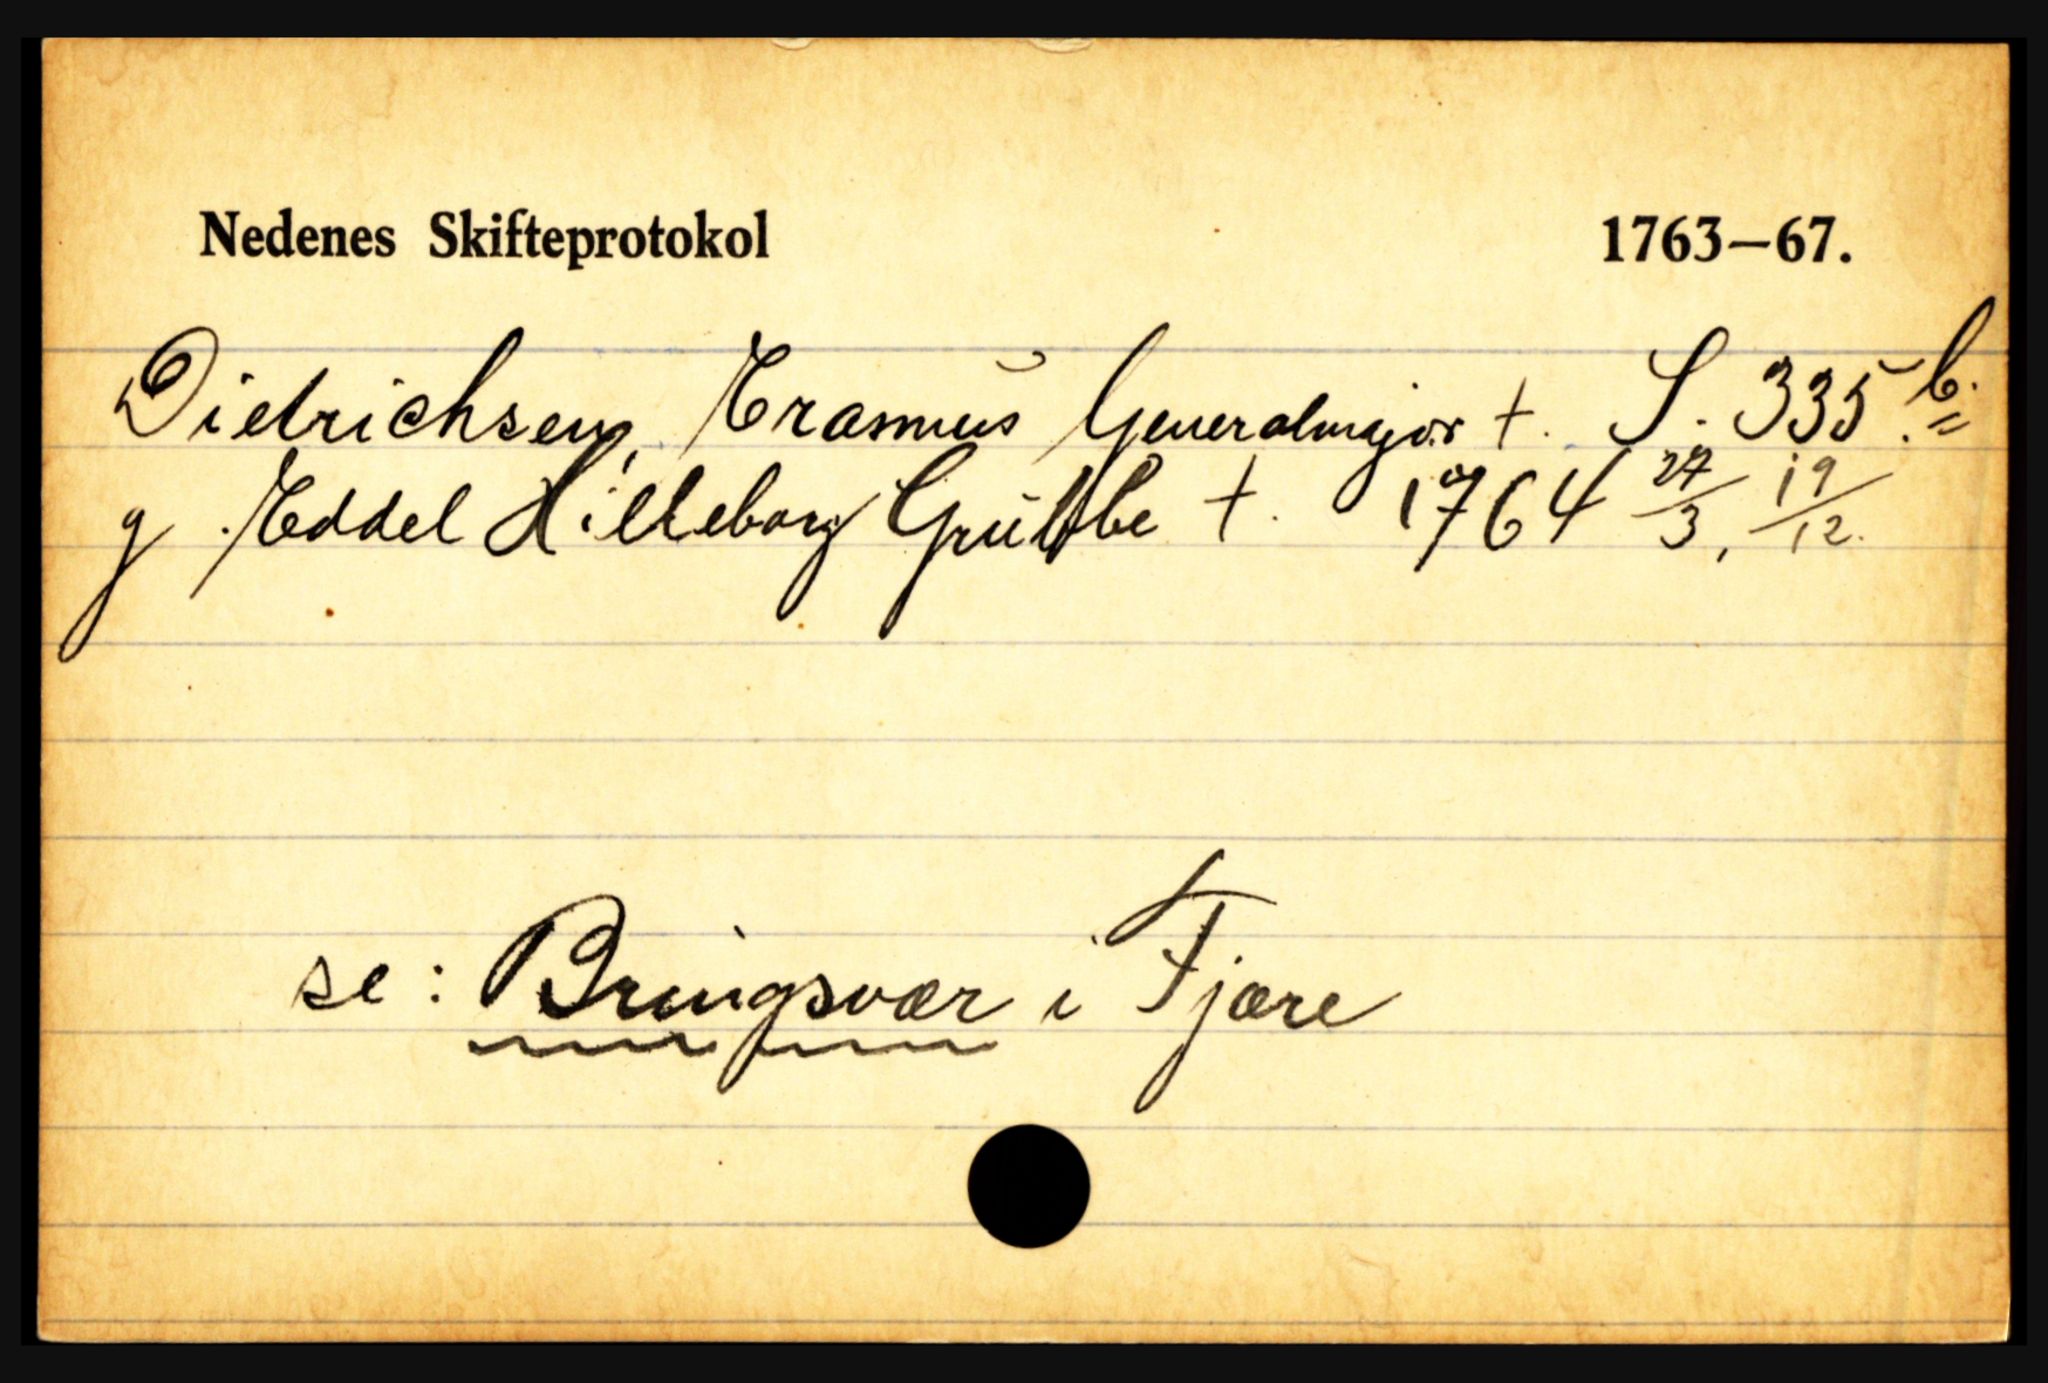 Nedenes Skifteprotokol 1763—67.
Dietrichsen, Erasmus Generalmajor †. S. 335.b.
g Eddel Hilleborg Grubbe †. 1764 27/3, 19/12.
se: Bringsvær i Fjære